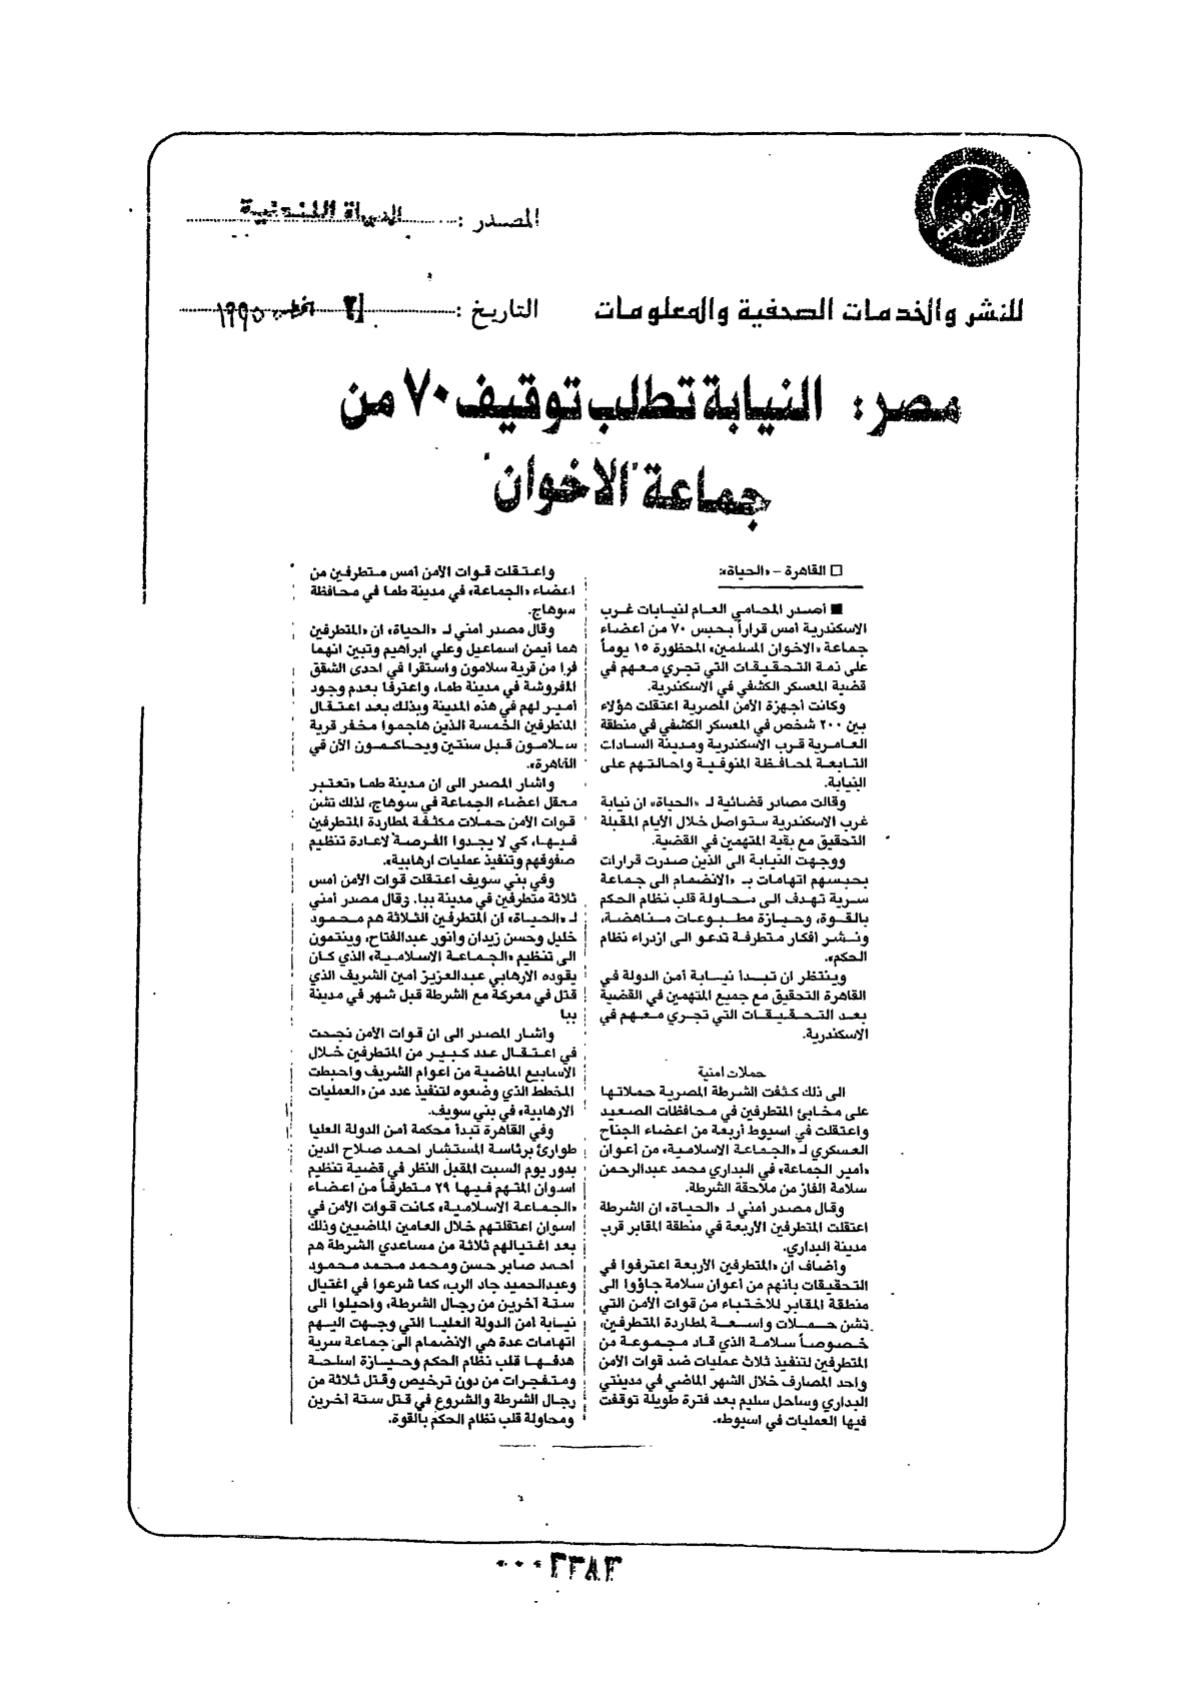 المصدر : الحياة اللندنية
للنشر والخدمات الصحفية والمعلومات
التاريخ : ١٩٩٥
مصر: النيابة تطلب توقيف ٧٠ من
جماعة "الاخوان"
□ القاهرة – «الحياة»:
■ أصدر المحامي العام لنيابات غرب
الاسكندرية أمس قراراً بحبس ٧٠ من أعضاء
جماعة «الاخوان المسلمين» المحظورة ١٥ يوماً
على ذمة التحقيقات التي تجري معهم في
قضية المعسكر الكشفي في الاسكندرية.
وكانت أجهزة الأمن المصرية اعتقلت هؤلاء
بين ٢٠٠ شخص في المعسكر الكشفي في منطقة
العامرية قرب الاسكندرية ومدينة السادات
التابعة لمحافظة المنوفية واحالتهم على
النيابة.
وقالت مصادر قضائية لـ «الحياة» ان نيابة
غرب الاسكندرية ستواصل خلال الأيام المقبلة
التحقيق مع بقية المتهمين في القضية.
ووجهت النيابة الى الذين صدرت قرارات
بحبسهم اتهامات بـ «الانضمام الى جماعة
سرية تهدف الى محاولة قلب نظام الحكم
بالقوة، وحيازة مطبوعات مناهضة،
ونشر أفكار متطرفة تدعو الى ازدراء نظام
الحكم».
وينتظر ان تبدأ نيابة أمن الدولة في
القاهرة التحقيق مع جميع المتهمين في القضية
بعد التحقيقات التي تجري معهم في
الاسكندرية.
حملات امنية
الى ذلك كثفت الشرطة المصرية حملاتها
على مخابئ المتطرفين في محافظات الصعيد
واعتقلت في اسيوط أربعة من اعضاء الجناح
العسكري لـ «الجماعة الاسلامية» من أعوان
«أمير الجماعة» في البداري محمد عبدالرحمن
سلامة الفار من ملاحقة الشرطة.
وقال مصدر أمني لـ «الحياة» ان الشرطة
اعتقلت المتطرفين الأربعة في منطقة المقابر قرب
مدينة البداري.
وأضاف ان «المتطرفين الأربعة اعترفوا في
التحقيقات بأنهم من أعوان سلامة جاؤوا الى
منطقة المقابر للاختباء من قوات الأمن التي
تشن حملات واسعة لمطاردة المتطرفين،
خصوصاً سلامة الذي قاد مجموعة من
المتطرفين لتنفيذ ثلاث عمليات ضد قوات الأمن
واحد المصارف خلال الشهر الماضي في مدينتي
البداري وساحل سليم بعد فترة طويلة توقفت
فيها العمليات في اسيوط».
واعتقلت قوات الأمن أمس متطرفين من
اعضاء «الجماعة» في مدينة طما في محافظة
سوهاج.
وقال مصدر أمني لـ «الحياة» ان «المتطرفين
هما أيمن اسماعيل وعلي ابراهيم وتبين انهما
فرا من قرية سلامون واستقرا في احدى الشقق
المفروشة في مدينة طما، واعترفا بعدم وجود
أمير لهم في هذه المدينة وبذلك بعد اعتقال
المتطرفين الخمسة الذين هاجموا مخفر قرية
سلامون قبل سنتين ويحاكمون الآن في
القاهرة».
واشار المصدر الى ان مدينة طما «تعتبر
معقل اعضاء الجماعة في سوهاج، لذلك تشن
قوات الأمن حملات مكثفة لمطاردة المتطرفين
فيها، كي لا يجدوا الفرصة لاعادة تنظيم
صفوفهم وتنفيذ عمليات ارهابية».
وفي بني سويف اعتقلت قوات الأمن أمس
ثلاثة متطرفين في مدينة ببا. وقال مصدر أمني
لـ «الحياة» ان المتطرفين الثلاثة هم محمود
خليل وحسن زيدان وانور عبدالفتاح، وينتمون
الى تنظيم «الجماعة الاسلامية» الذي كان
يقوده الارهابي عبدالعزيز أمين الشريف الذي
قتل في معركة مع الشرطة قبل شهر في مدينة
ببا
واشار المصدر الى ان قوات الأمن نجحت
في اعتقال عدد كبير من المتطرفين خلال
الأسابيع الماضية من اعوام الشريف واحبطت
المخطط الذي وضعوه لتنفيذ عدد من «العمليات
الارهابية» في بني سويف.
وفي القاهرة تبدأ محكمة أمن الدولة العليا
طوارئ برئاسة المستشار احمد صلاح الدين
بدور يوم السبت المقبل النظر في قضية تنظيم
اسوان المتهم فيها ٢٩ متطرفاً من اعضاء
«الجماعة الاسلامية» كانت قوات الأمن في
اسوان اعتقلتهم خلال العامين الماضيين وذلك
بعد اغتيالهم ثلاثة من مساعدي الشرطة هم
احمد صابر حسن ومحمد محمد محمود
وعبدالحميد جاد الرب، كما شرعوا في اغتيال
ستة آخرين من رجال الشرطة، واحيلوا الى
نيابة امن الدولة العليا التي وجهت اليهم
اتهامات عدة هي الانضمام الى جماعة سرية
هدفها قلب نظام الحكم وحيازة اسلحة
ومتفجرات من دون ترخيص وقتل ثلاثة من
رجال الشرطة والشروع في قتل ستة آخرين
ومحاولة قلب نظام الحكم بالقوة.